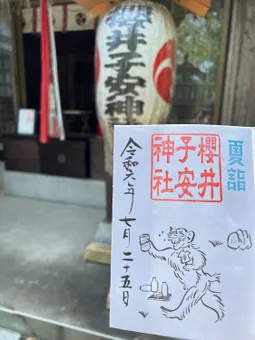 櫻井子安神
夏詣
櫻井
子安
神社
令和六年 七月二十五日